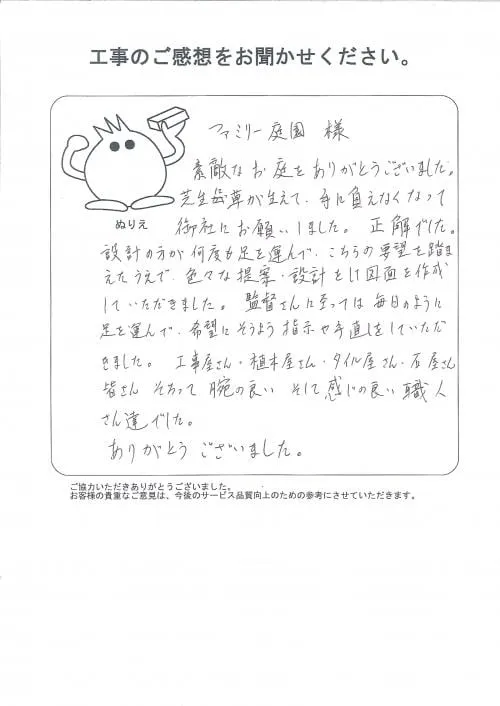 工事のご感想をお聞かせください。
ファミリー庭園 様
素敵なお庭をありがとうございました。
芝生雑草が生えて、手に負えなくなって
ぬりえ
御社にお願いしました。正解でした。
設計の方が何度も足を運んで、こちらの要望を踏ま
えたうえで、色々な提案・設計をして図面を作成
していただきました。監督さんに至っては毎日のように
足を運んで、希望にそうよう指示や手直しをしていただ
きました。工事屋さん・植木屋さん・タイル屋さん・石屋さん
皆さん そろって 腕の良い そして感じの良い職人
さん達でした。
ありがとう ございました。
ご協力いただきありがとうございました。
お客様の貴重なご意見は、今後のサービス品質向上のための参考にさせていただきます。